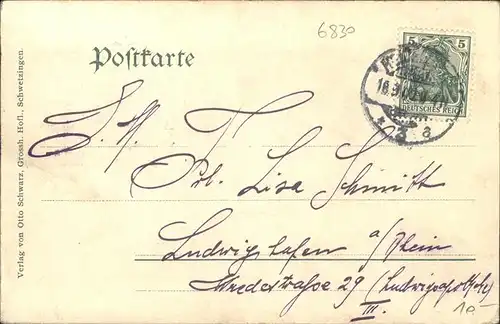 6830
Postkarte
5 5
DEUTSCHES REICH
3 a
Lisa Schmitt
Ludwigshafen a/Rhein
Wredestraße 29 (Ludwigsapotheke)
III.
10.-
Verlag von Otto Schwarz, Grossh. Hofl., Schwetzingen.